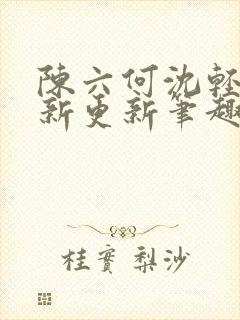 陳六何沈輕
新更新筆趣
桂實梨沙